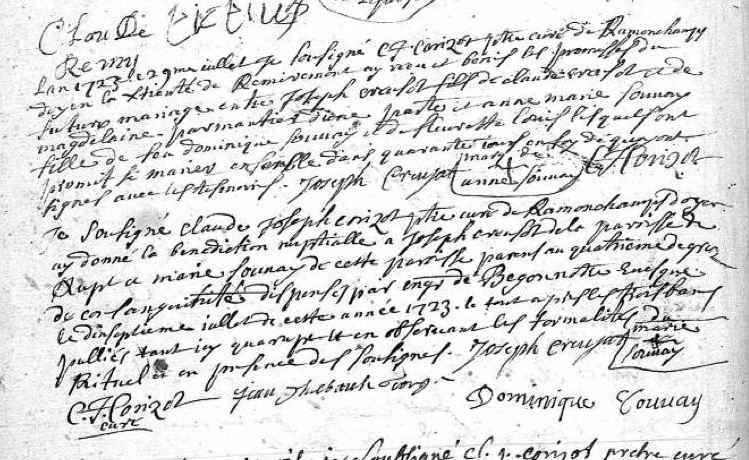 Claude
Remy
Lan 1723 le 29me iullet Je Soussigné C J Corizot ptre curé de Ramonchamp
doyen la Xtienté de Remiremont ay receu et benis les promesses du
futurs mariage entre Joseph creusot fils de claude creusot et de
magdelaine parmantier d'une parte et anne marie Souvay
fille de feu dominique Souvay et de fleurette Louis lesquels ont
promit se marier ensemble dans quarante iours en foy de quoy ont
signes avec les tesmoins. Joseph Creusot marq de anne Souvay C J Corizot
Je Soussigné Claude Joseph Corizot ptre curé de Ramonchamps doyen
ay donné la benediction nuptialle a Joseph creusot de la parroisse de
Rupt a marie Souvay de cette paroisse parens au quatrieme degrez
de consanguinité dispensez par engr de Begon notre Evesque
le dinseptieme iullet de cette année 1723. le tout apres les trois bans
pulliés tant icy qua rupt et en observant les formalites du
Rituel et en presence des soussignes. Joseph creusot marie Souvay
C. J. Corizot Jean Thiebault
curé Dominique Souvay
Soussigné Cl. J. Corizot prebtre curé